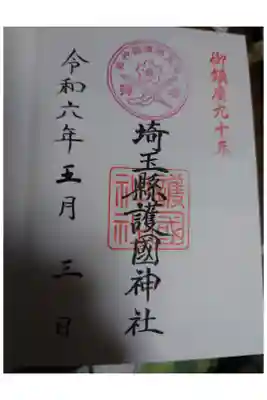 御鎮座九十年
埼玉縣護國神社
護國
神社
令和六年五月三日